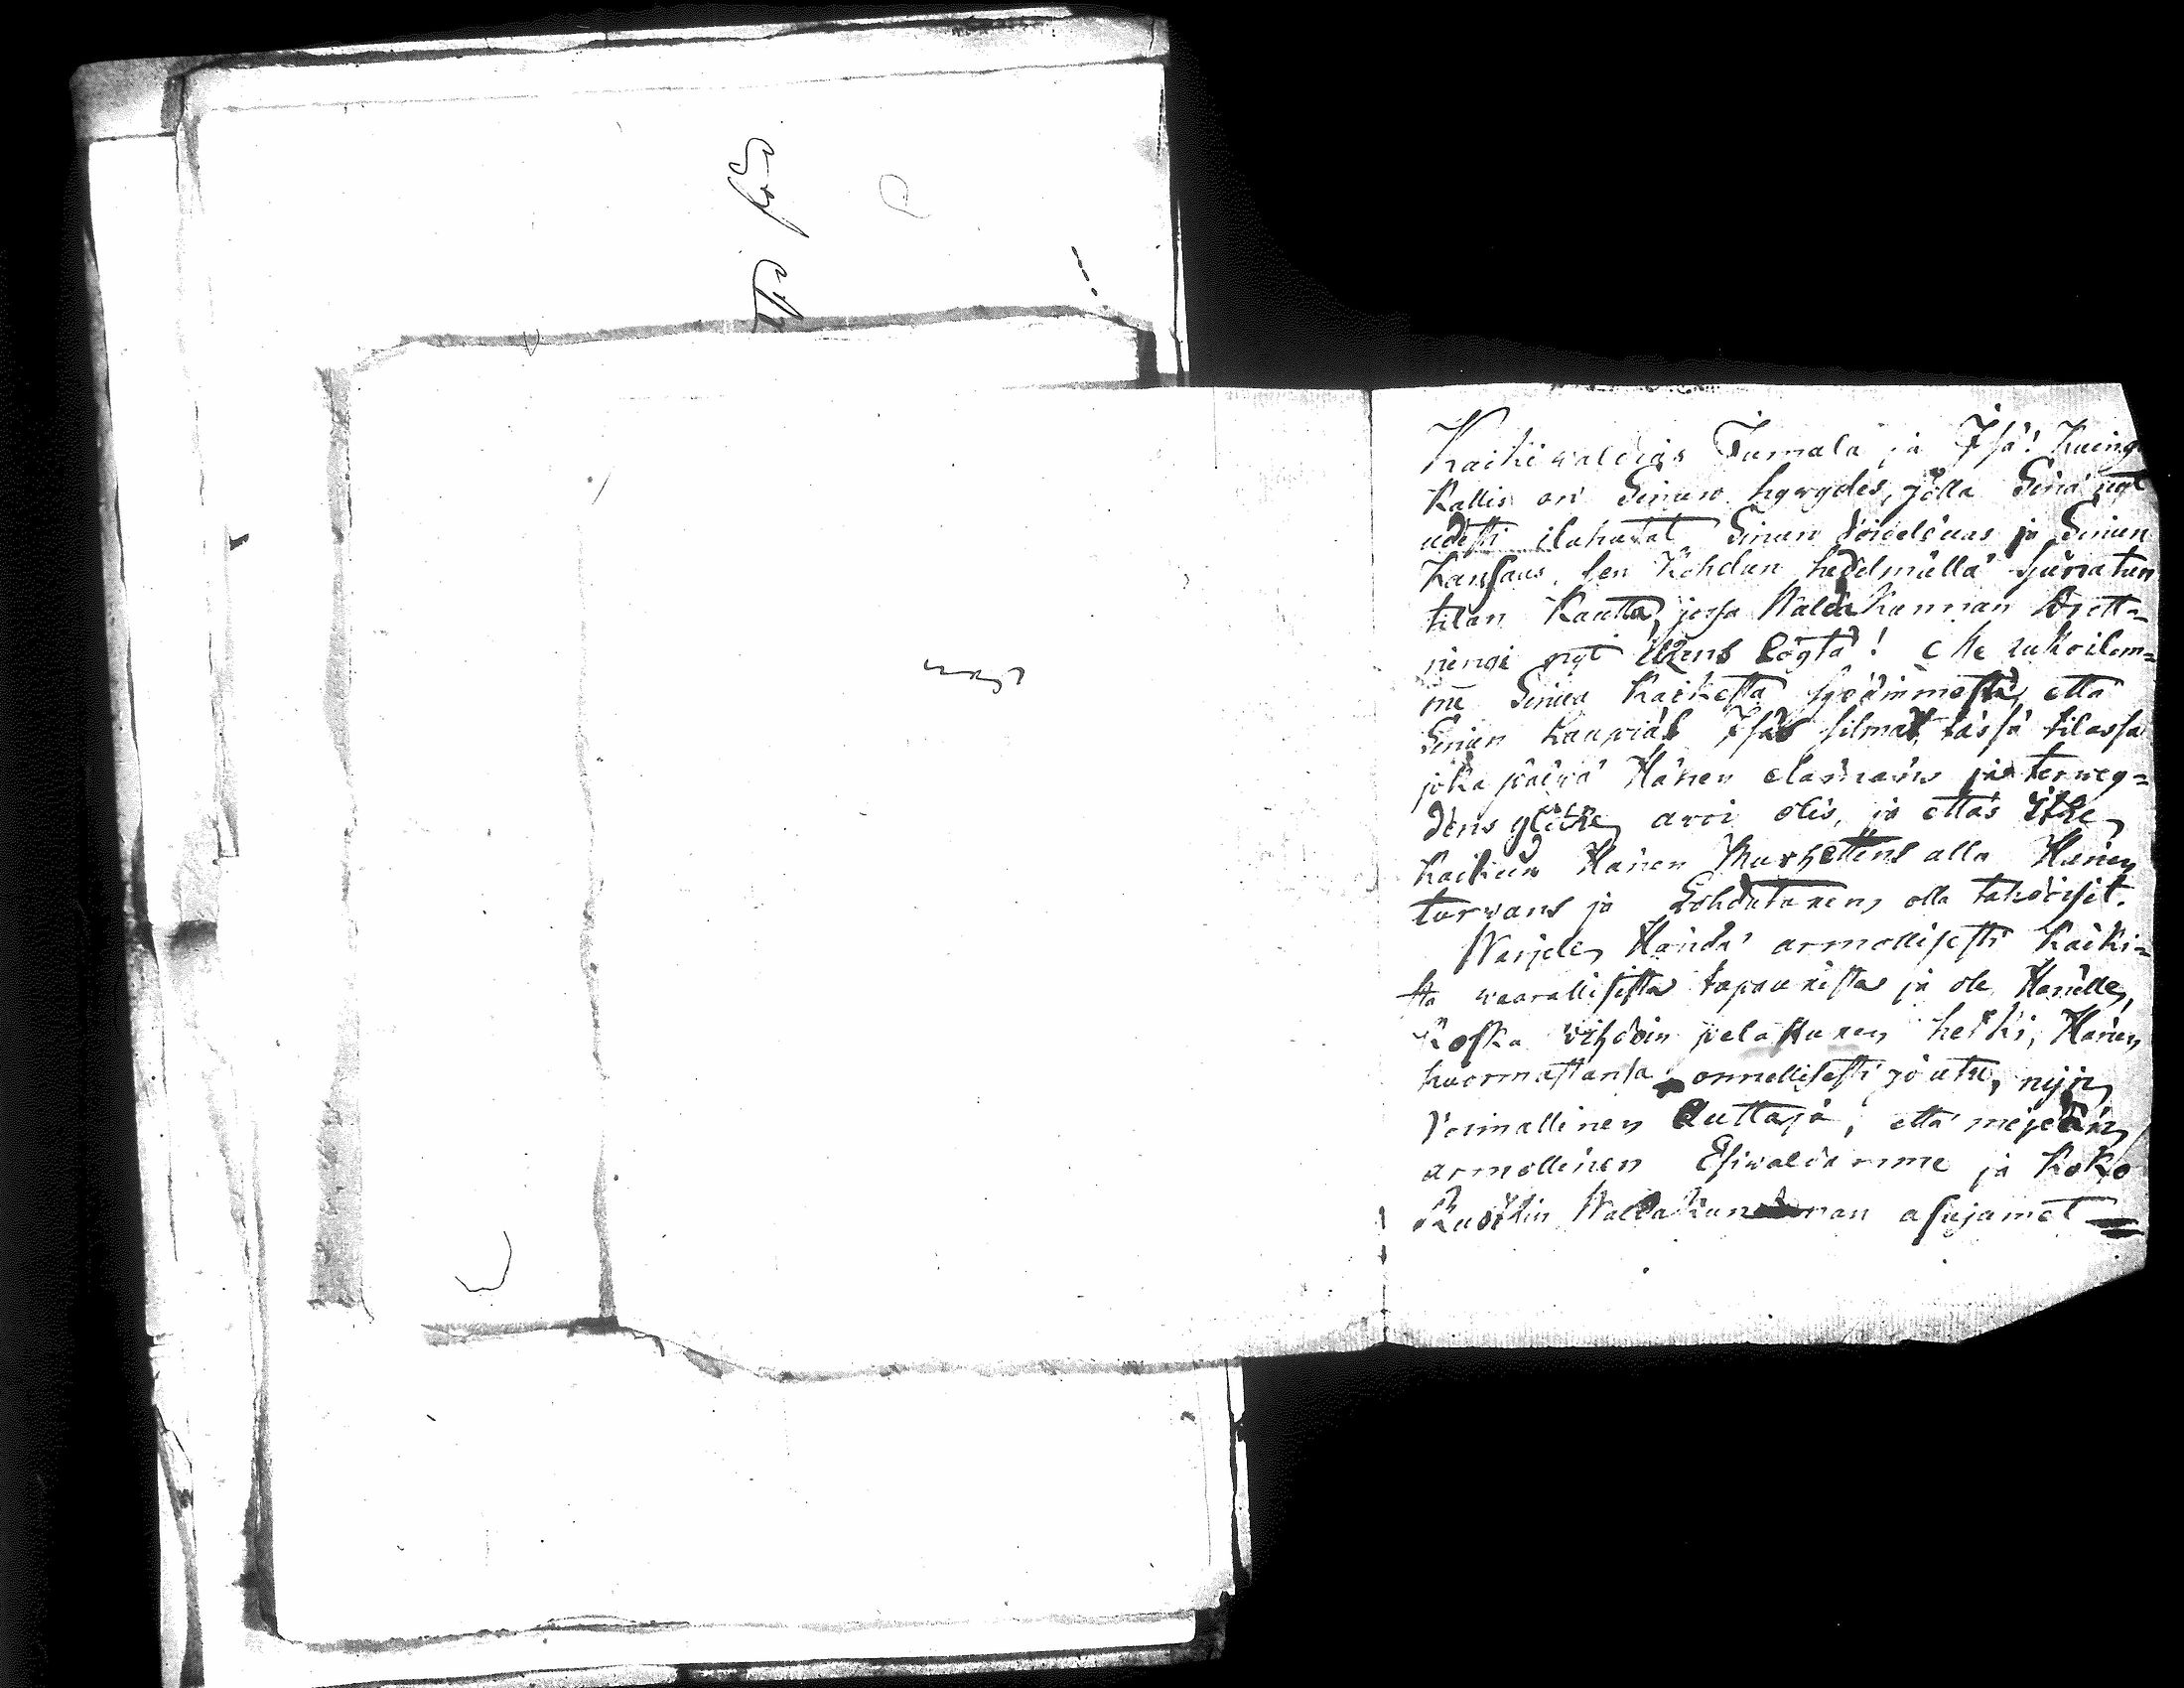 Kaikiwaldias Jumala ja Isä! Kuinga
kallis on Sinun hywydes, jolla Sinä nyt
udesti ilahutat Sinun Voidelduas ja Sinun
Kansaus, sen Kohdun hedelmällä siunatun
tilan kautta, josa Waldakunnan Drott-
ningi nyt idzens löytä! Me rukoilem-
me Sinua kaikesta sydämmestä, että
Sinun kaupiat Isäs silmät täsfä tilassa
joka päiwä Hänen elämäns ja terwey-
dens ylitze awoi olis, ja ettäs itze
kaikein Hänen Murhettens alla Hänen
turwans ja Lohdutuxens olla tahdoisit.
Warjele Händä armollisesti kaiki-
sta waarallisista tapauxista ja ole Hänelle,
koska wihdoin pelastuxen hetki, Hänen
kuormastansa onnellisesti joutu, nijn
Voimallinen Auttaja, että meidän
armollinen Esiwaldamme ja koko
Ruotzin Waldakunnan asujamet